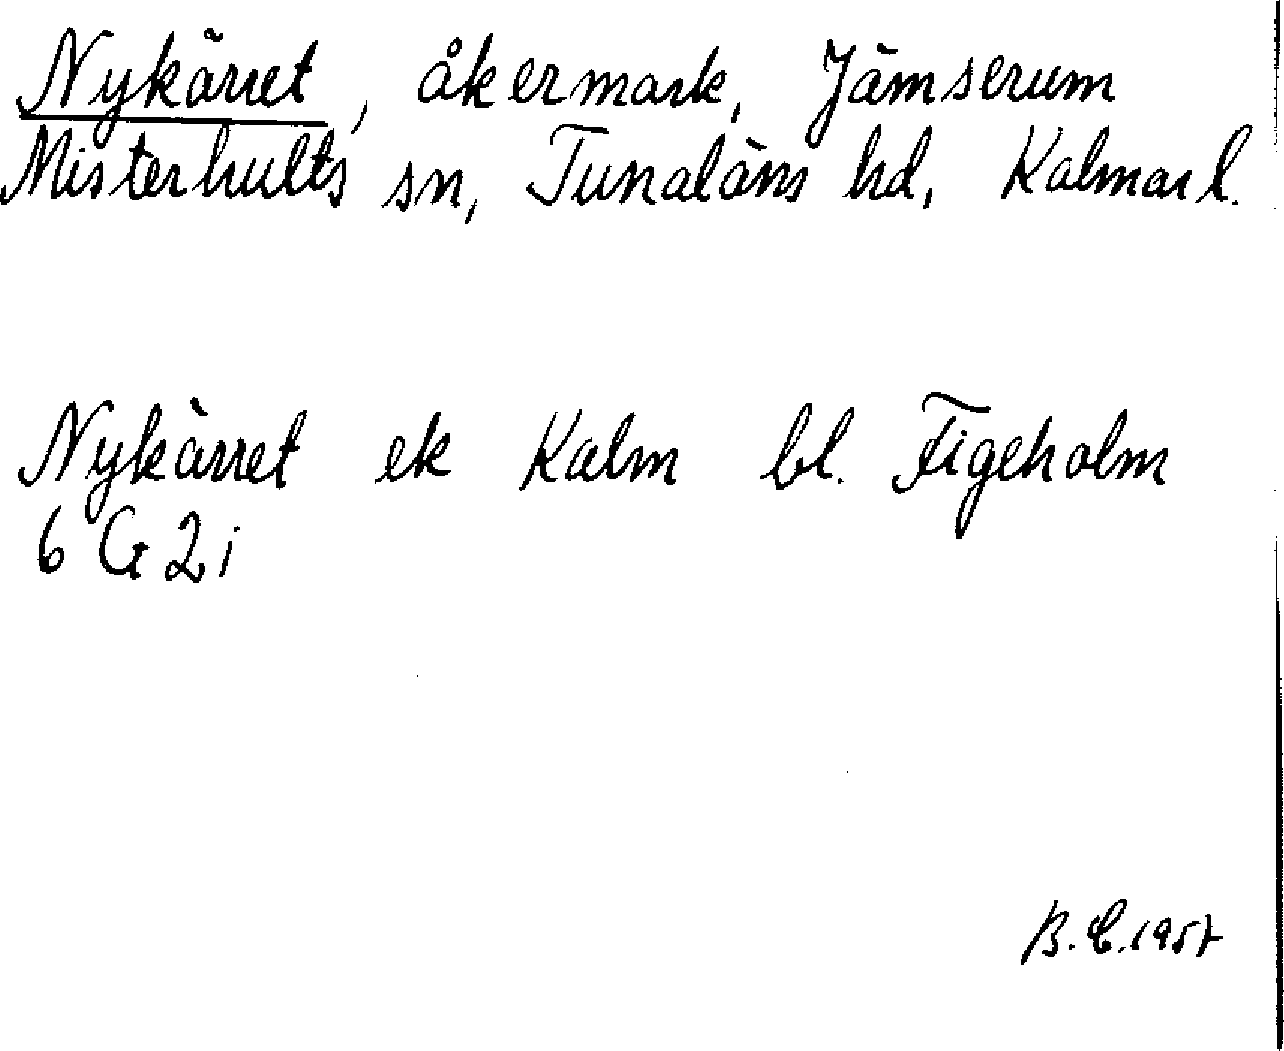 Nykärret, åkermark, Jämserum
Misterhults sn, Tunaläns hd, Kalmar l.
Nykärret ek Kalm bl. Figeholm
6 G 2 i
B. E. 1957